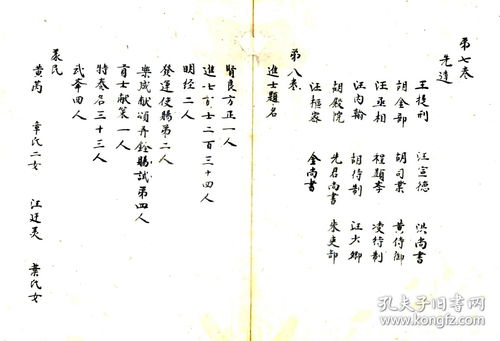 第七卷
先達
王提刑 汪宣德 洪尚書
胡金部 胡司業 黄侍御
汪丞相 程顯學 凌待制
汪内翰 胡待制 汪大卿
胡殿院 先君尚書 朱吏部
汪樞密 金尚書
第八卷
進士題名
賢良方正一人
進士二百三十四人
明經二人
發運使賜第二人
樂成獻頌并銓賜試第四人
貢士獻策一人
特奏名三十三人
武舉四人
義民
黄芮 章氏二女 汪廷美 葉氏女
孔夫子旧书网
www.kongfz.com